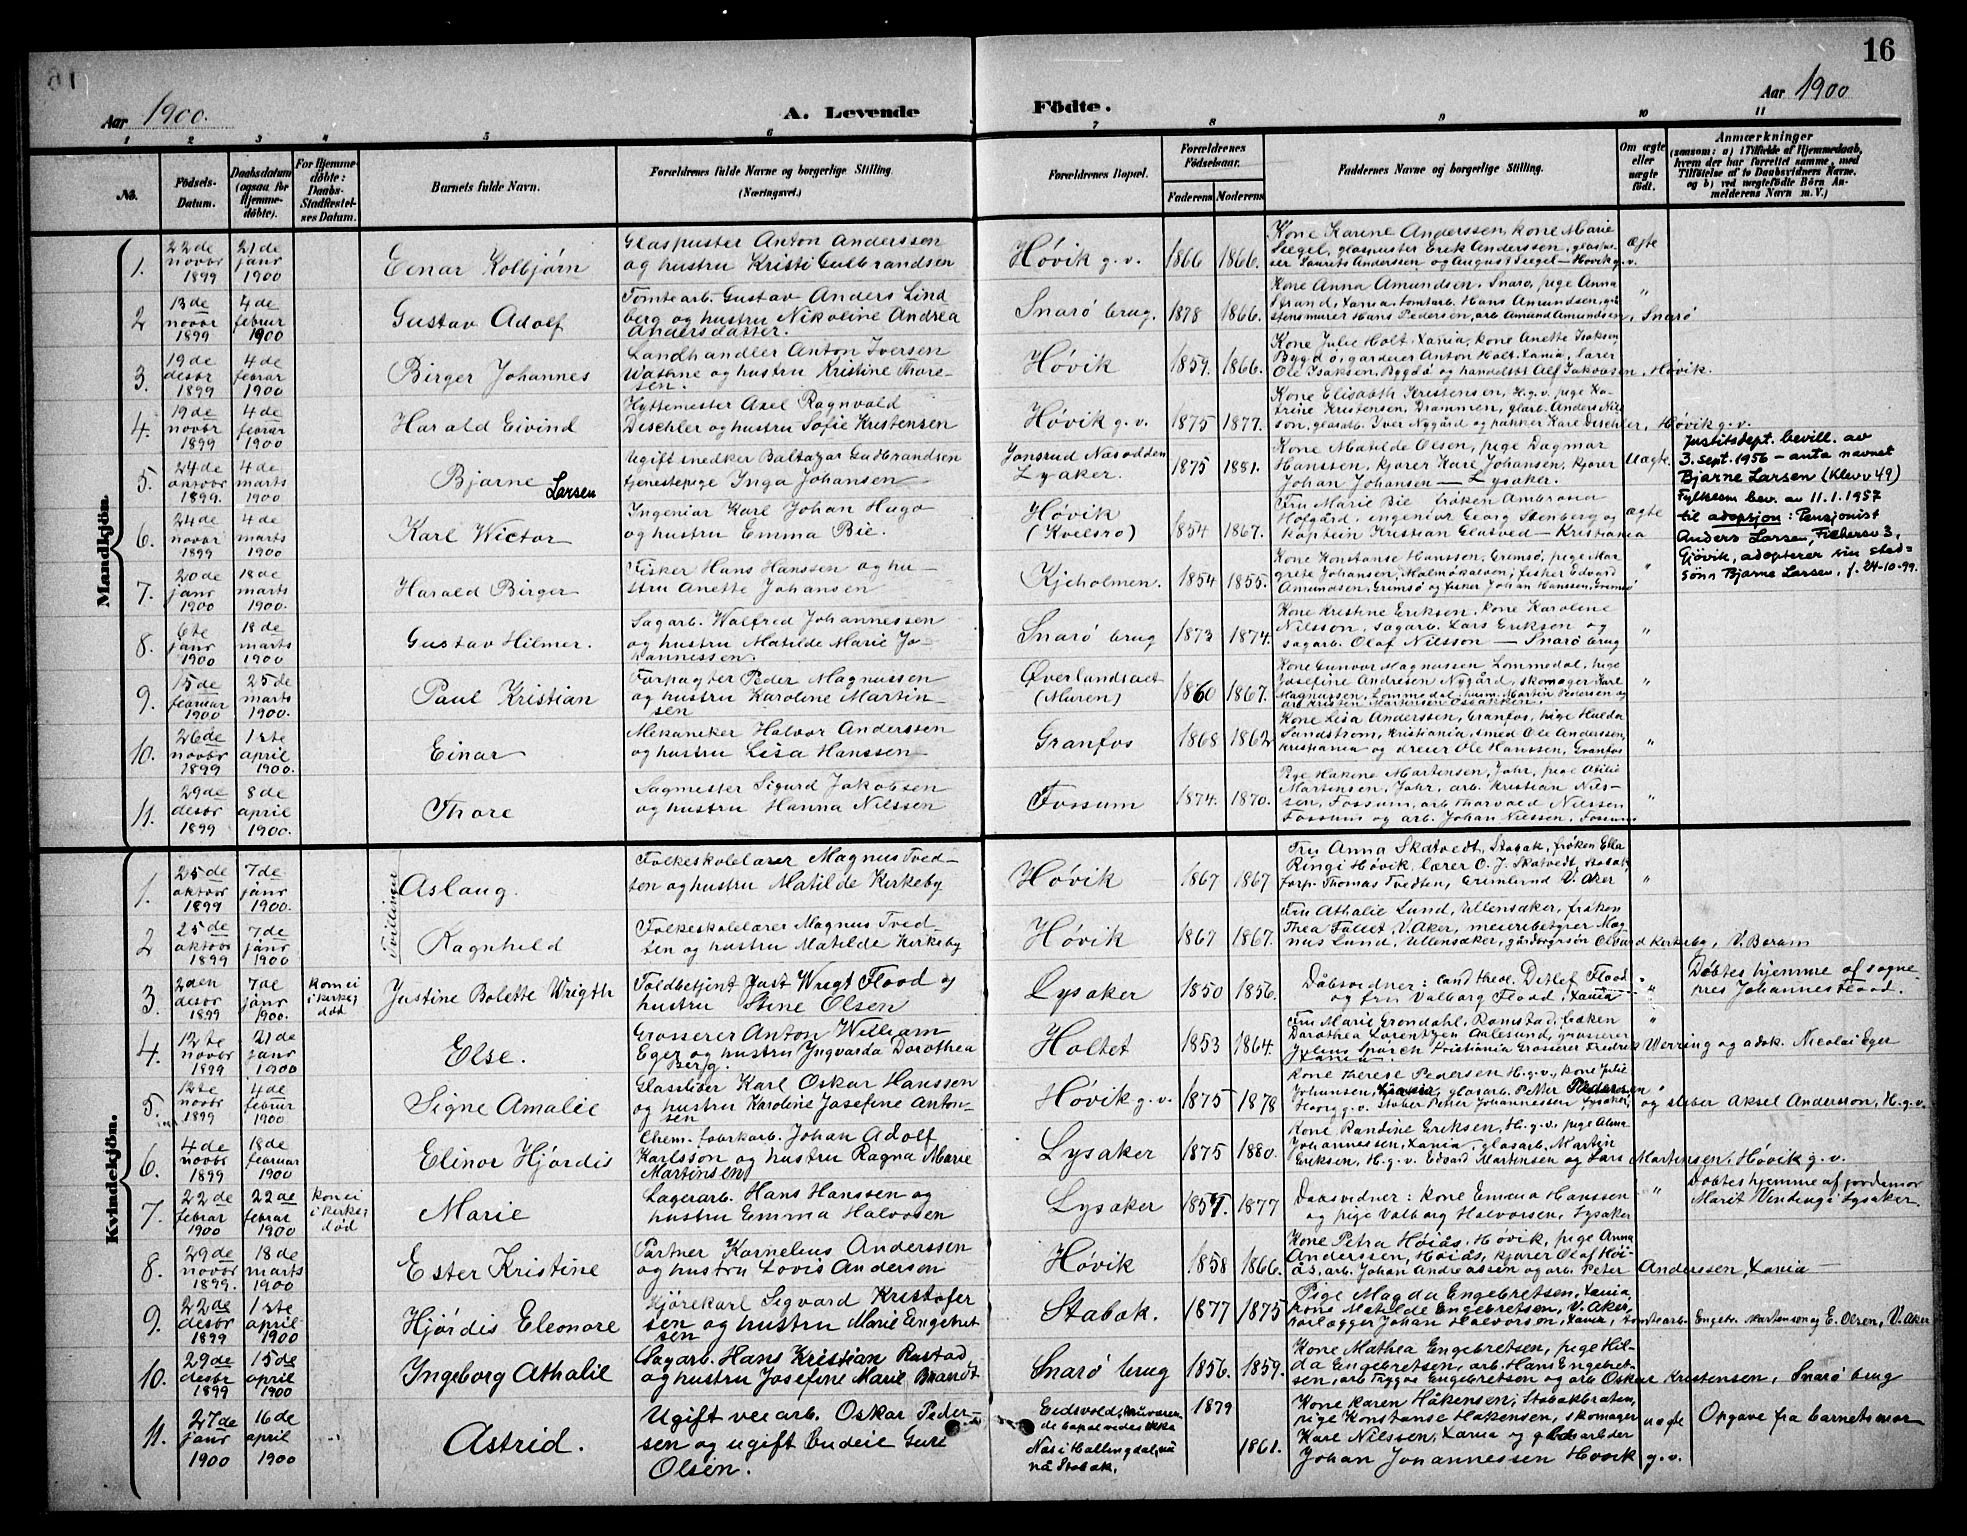 16
Aar 1900.
A. Levende Födte.
Aar 1900
1 2 3 4 5 6 7 8 9 10 11
No.
Födsels-Datum.
Daabsdatum (ogsaa for Hjemmedöbte).
For Hjemmedöbte: Daabs-Stadfæstelses Datum.
Barnets fulde Navn.
Forældrenes fulde Navne og borgerlige Stilling. (Næringsvei.)
Forældrenes Bopæl.
Forældrenes Födselsaar.
Faderens Moderens
Faddernes Navne og borgerlige Stilling.
Om ægte eller uægte født.
Anmærkninger
(saasom: a) i Tilfælde af Hjemmedaab, hvem der har forrettet samme, med Tilföielse af to Daabsvidners Navne, og b) ved uægtefödte Börn Anmelderens Navn m. V.)
Mandkjön.
1. 22de novbr 1899 21de janr 1900 Einar Kolbjørn
Glaspuster Anton Anderssen
og hustru Kristi Gulbrandsen
Høvik g.v. 1866 1866.
Kone Karine Anderssen, kone Marie
Siegel, glaspuster Erik Anderssen, glaspu-
ser Laurits Anderssen og August Siegel – Høvik g.v.
ægte
2 13de novbr 1899 4de februr 1900 Gustav Adolf
Tomtearb. Gustav Anders Lind
berg og hustru Nikoline Andrea
Andersdatter.
Snarø brug. 1878 1866.
Kone Anna Amundsen, Snarø, pige Anna
Strand, Xania, tomtarb. Hans Amundsen, grå
stensmurer Hans Pedersen, arb. Amund Amundsen, Snarø
"
3. 19de desbr 1899 4de februar 1900 Birger Johannes
Landhandler Anton Iversen
Wathne og hustru Kristine Thore-
sen.
Høvik 1859. 1866.
Kone Julie Holt, Xania, kone Anette Isaksen
Bygdø, gardener Anton Holt, Xania, lærer
Ole Isaksen, Bygdø og handelsbt Alf Jakobsen, Høvik.
4. 19de novbr 1899 4de februar 1900 Harald Eivind
Hyttemester Axel Ragnvald
Dischler og hustru Sofie Kristensen
Høvik g.v. 1875 1877.
Kone Elisabth Kristensen, H.g.v. pige Ka-
trine Kristensen, Drammen, glarb. Anders Nils
son, glasarb. Iver Nygård og pakker Karl Dischler, Høvik g.v.
5. 24de oktobr 1899. 4de marts 1900 Bjarne Larsen
Ugift snedker Baltazar Gudbrandsen
tjenestepige Inga Johansen
Jonsrud Næsodden
Lysaker. 1875 1881.
Kone Matilde Olsen, pige Dagmar
Hanssen, kjører Karl Johansen, kjører
Johan Johansen – Lysaker.
Uægte
Justitsdept. bevill. av
3. sept. 1956 – anta navnet
Bjarne Larsen (Klevv 49)
Fylkesm bev. av 11.1.1957
til adopsjon: Pensjonist
Anders Larsen, Fischersv 3,
Gjövik, adopterer sin sted-
sönn Bjarne Larsen, f. 24-10-99.
6. 24de novbr 1899 4de marts 1900 Karl Wictor
Ingeniør Karl Johan Hugo
og hustru Emma Bie.
Høvik
(Kvelsro) 1854 1867.
Fru Marie Bie, frøken Ambrosia
Hofgård, ingeniør Georg Stenberg og
kaptein Kristian Glatved – Kristiania
ægte
7. 20de janr 1900 18de marts 1900. Harald Birger
Fisker Hans Hanssen og hu-
stru Anette Johansen
Kjeholmen. 1854 1855.
Kone Konstanse Hanssen, Grimsø, pige Mar
grete Johansen, Malmøkalven, fisker Edvard
Amundsen, Grimsø og fisker Johan Hanssen, Grimsø
"
8. 6te janr 1900 18de marts 1900 Gustav Hilmer.
Sagarb. Walfred Johannessen
og hustru Matilde Marie Jo-
hannessen.
Snarø brug 1873 1874.
Kone Kristine Eriksen, kone Karoline
Nilsson, sagarb. Lars Erikson og
sagarb. Olaf Nilsson – Snarø brug
"
9. 15de februar 1900 25de marts 1900. Paul Kristian
Forpagter Peder Magnussen
og hustru Karoline Martin-
sen
Øverlandsæt
(Muren) 1860 1867.
Kone Gunvor Magnussen, Lommedal, pige
Josefine Andresen Nygård, skomager Karl
Magnussen, Lommedal, husm. Martin Pedersen og
arb. Kristen Martensen Ossakker.
"
10. 26de novbr 1899 1ste april 1900. Einar
Mekaniker Halvor Anderssen
og hustru Lisa Hanssen
Granfos 1868 1862
Kone Lisa Anderssen, Granfos, pige Hulda
Sundstrøm, Kristiania, smed Ole Anderssen,
Kristiania og dreier Ole Hanssen, Granfos
"
11. 29de desbr 1899 8de april 1900. Thore
Sagmester Sigurd Jakobsen
og hustru Hanna Nilssen
Fossum 1874. 1870.
Pige Hakine Martensen, Jahr, pige Otilie
Martensen, Jahr, arb. Kristian Nils-
sen, Fossum, arb. Thorvald Nilssen
Fossum og arb. Johan Nilssen, Fossum
"
Kvindekjön.
Tvillinger
1. 25de oktobr 1899 7de janr 1900. Aslaug.
Folkeskolelærer Magnus Tved-
ten og hustru Matilde Kirkeby
Høvik 1867 1867
Fru Anna Skatvedt, Stabæk, frøken Ella
Ringi Høvik, lærer O. J. Skatvedt, Stabæk,
forp. Thomas Tvedten, Grimlund V. Aker
"
2 25de oktobr 1899 7de janr 1900. Ragnhild
Folkeskolelærer Magnus Tved-
ten og hustru Matilde Kirkeby
Høvik 1867 1867.
Fru Athalie Lund, Ullensaker, frøken
Thea Tallet V. Aker, meieribestyrer Mag-
nus Lund, Ullensaker, gårdbrgrsøn Olvard Kirkeby, V. Bærum
3. 2den desbr 1899 7de janr 1900. kom ei i kirke, død Justine Bolette Wrigth
Toldbetjent Just Wregt Flood og
hustru Stine Olsen
Lysaker 1850 1856.
Dåbsvidner: Cand theol. Detlef Flood
og fru Valborg Flood, Xania
"
Døbtes hjemme af sogne-
pres Johannes Flood.
4. 12te novbr 1899 21de janr 1900 Else.
Grosserer Anton William
Eger og hustru Yngvarda Dorothea
Berg.
Holtet 1853 1864.
Fru Marie Grøndahl, Ramstad, frøken
Dorothea Lorentzen Aalesund, grosserer
Julius Sparch Kristiania Grosserer Fredrik Werring og adok. Nicolai Eger
Xania
"
5. 12te novbr 1899 4de februr 1900 Signe Amalie
Glassliber Karl Oskar Hanssen
og hustru Karoline Josefine Anton-
sen
Høvik g.v. 1875 1878
Kone Therese Pedersen H.g.v., kone Julie
Johansen, Xania, glasarb. Petter Pedersen
Høvig g.v. sliber Peter Johannessen Lysaker, og sliber Aksel Andersson, H.g.v.
"
6. 4de novbr 1899 18de februar 1900 Elinor Hjørdis
Chem. fabrkarb. Johan Adolf
Karlsson og hustru Ragna Marie
Martinsen
Lysaker 1875 1880.
Kone Randine Eriksen, H.g.v. pige Alma
Johannessen, Xania, glasarb. Martin
Eriksen, H.g.v. Edvard Martensen og Lars Martensen, Høvik g.v.
7. 22de februar 1900 22de februar 1900 kom ei i kirke, død Marie
Lagerarb. Hans Hanssen og
hustru Emma Halvorsen
Lysaker 1877
Dåbsvidner: Kone Emma Hanssen
og pige Valborg Halvorsen, Lysaker
"
Døbtes hjemme af jordemor
Marit Vindingi Lysaker.
8. 29de novbr 1899. 18de marts 1900 Ester Kristine
Partner Kornelius Anderssen
og hustru Lovis Andersen
Høvik 1858 1866.
Kone Petra Høiås, Høvik, pige Anna
Anderssen, Høiås, kjører Olaf Høi-
ås, arb. Johan Andreassen og arb. Peter Anderssen, Xania
9. 22de desbr 1899 1ste april 1900 Hjørdis Eleonore
Kjørekarl Sigvard Kristofer
sen og hustru Marie Engebret
sen
Stabæk. 1877 1875
Pige Magda Engebretsen, Xania,
kone Matilde Engebretsen, V. Aker,
rørlægger Johan Halvorsen, Xania, tomtearb. Engebr. Martenson og E. Olsen, V. Aker
10. 29de desbr 1899 15de april 1900 Ingeborg Athalie
Sagarb. Hans Kristian Rustad
og hustru Josefine Marie Brandt
Snarø brug 1856. 1859.
Kone Mathea Engebretsen, pige Hil-
da Engebretsen, arb. Hans Engebret-
sen, arb. Trygve Engebretsen og arb. Oskar Kristensen, Snarø brug
11. 27de janr 1900 16de april 1900 Astrid.
Ugift veiarb. Oskar Peder-
sen og ugift budeie Guri
Olsen.
Eidsvold, nuværen-
de bopæl vides ikke
Næs i Hallingdal, nu
på Stabæk. 1879 1861.
Kone Karen Håkensen, Stabækbråten,
pige Konstanse Håkensen, skomager
Karl Nilssen, Xania og glasarbeider
Johan Johannessen Høvik g.v.
uægte
Opgave fra barnets mor